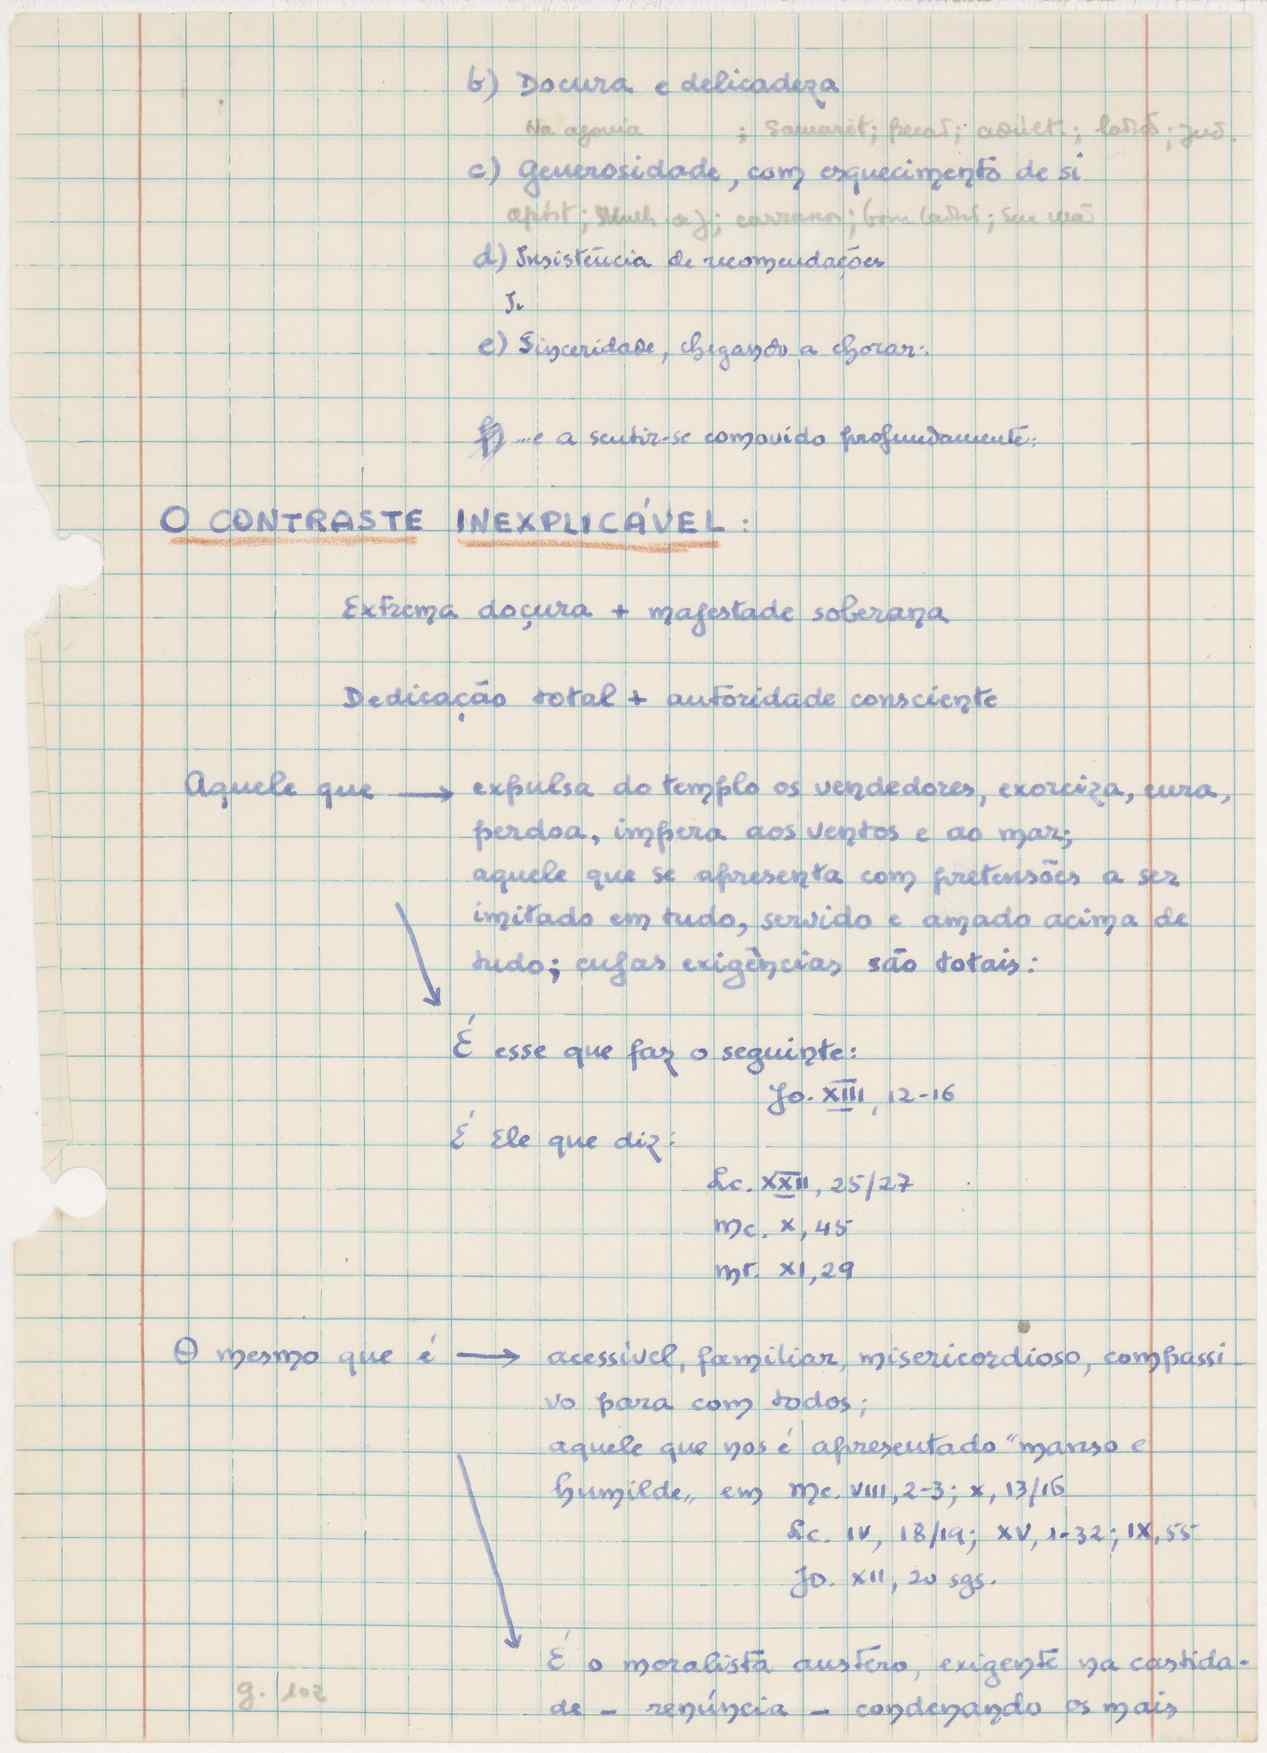 b) Docura e delicadeza
Na agonia ; Samarit; pecad; adúlt.; ladrõ; jud.
c) Generosidade, com esquecimento de si
apóst; bom ladrã; sua mã
d) Insistência de recomendações
J.
e) Sinceridade, chegando a chorar:
...e a sentir-se comovido profundamente:
O CONTRASTE INEXPLICÁVEL:
Extrema doçura + majestade soberana
Dedicação total + autoridade consciente
Aquele que → expulsa do templo os vendedores, exorciza, cura,
perdoa, impera aos ventos e ao mar;
aquele que se apresenta com pretensões a ser
imitado em tudo, servido e amado acima de
tudo; cujas exigências são totais:
É esse que faz o seguinte:
Jo. XIII, 12-16
É Ele que diz:
Lc. XXII, 25/27
Mc. X, 45
Mt. XI, 29
O mesmo que é → acessível, familiar, misericordioso, compassi
vo para com todos;
aquele que nos é apresentado "manso e
humilde„ em Mc. VIII, 2-3; X, 13/16
Lc. IV, 18/19; XV, 1-32; IX, 55
Jo. XII, 20 sgs.
É o moralista austero, exigente na castida-
de - renúncia - condenando os mais
g. 102